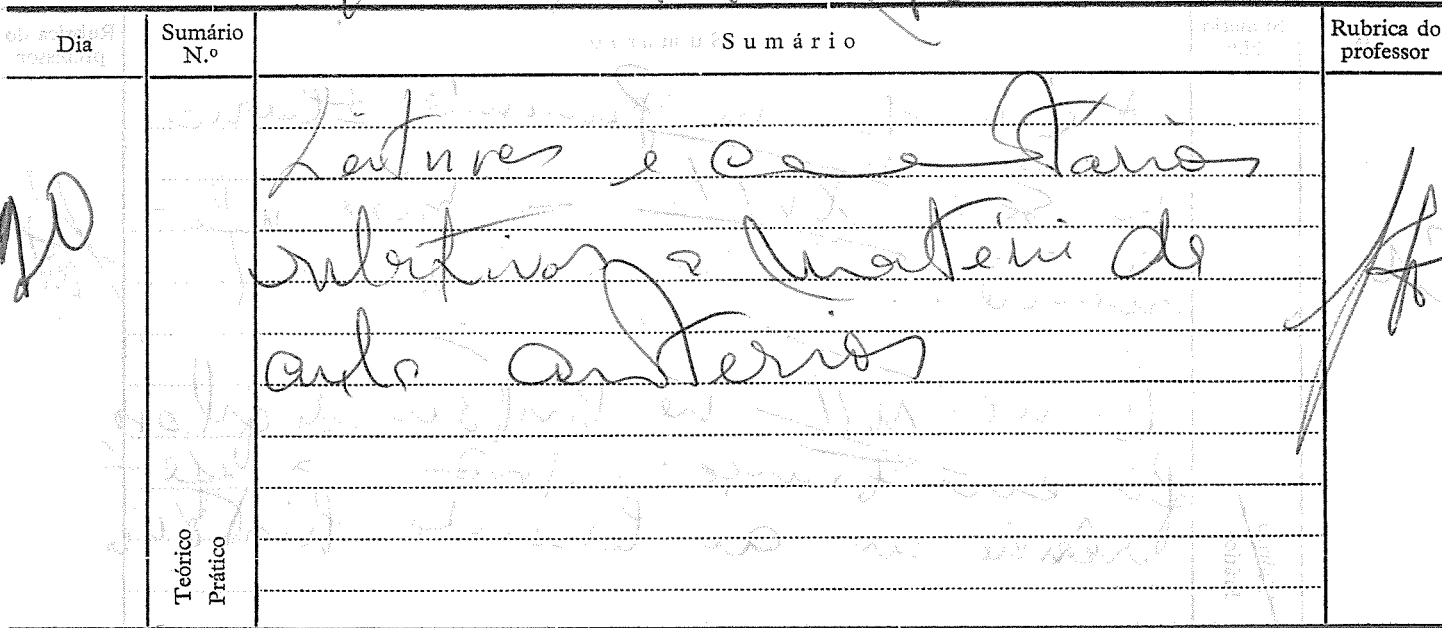 Dia Sumário N.º Sumário Rubrica do professor
20 Leituras e comentários
relativos a matéria da
aula anterior
Teórico
Prático